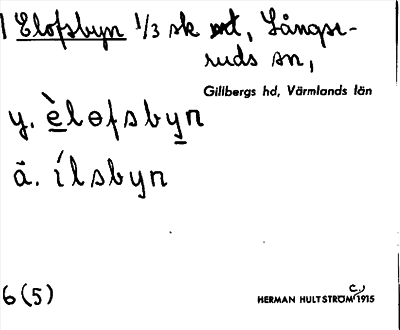 1 Elofsbyn 1/3 sk mt, Långse-
ruds sn,
Gillbergs hd, Värmlands län
y. èlofsbyn
ä. ílsbyn
6(5)
C.
HERMAN HULTSTRÖM 1915